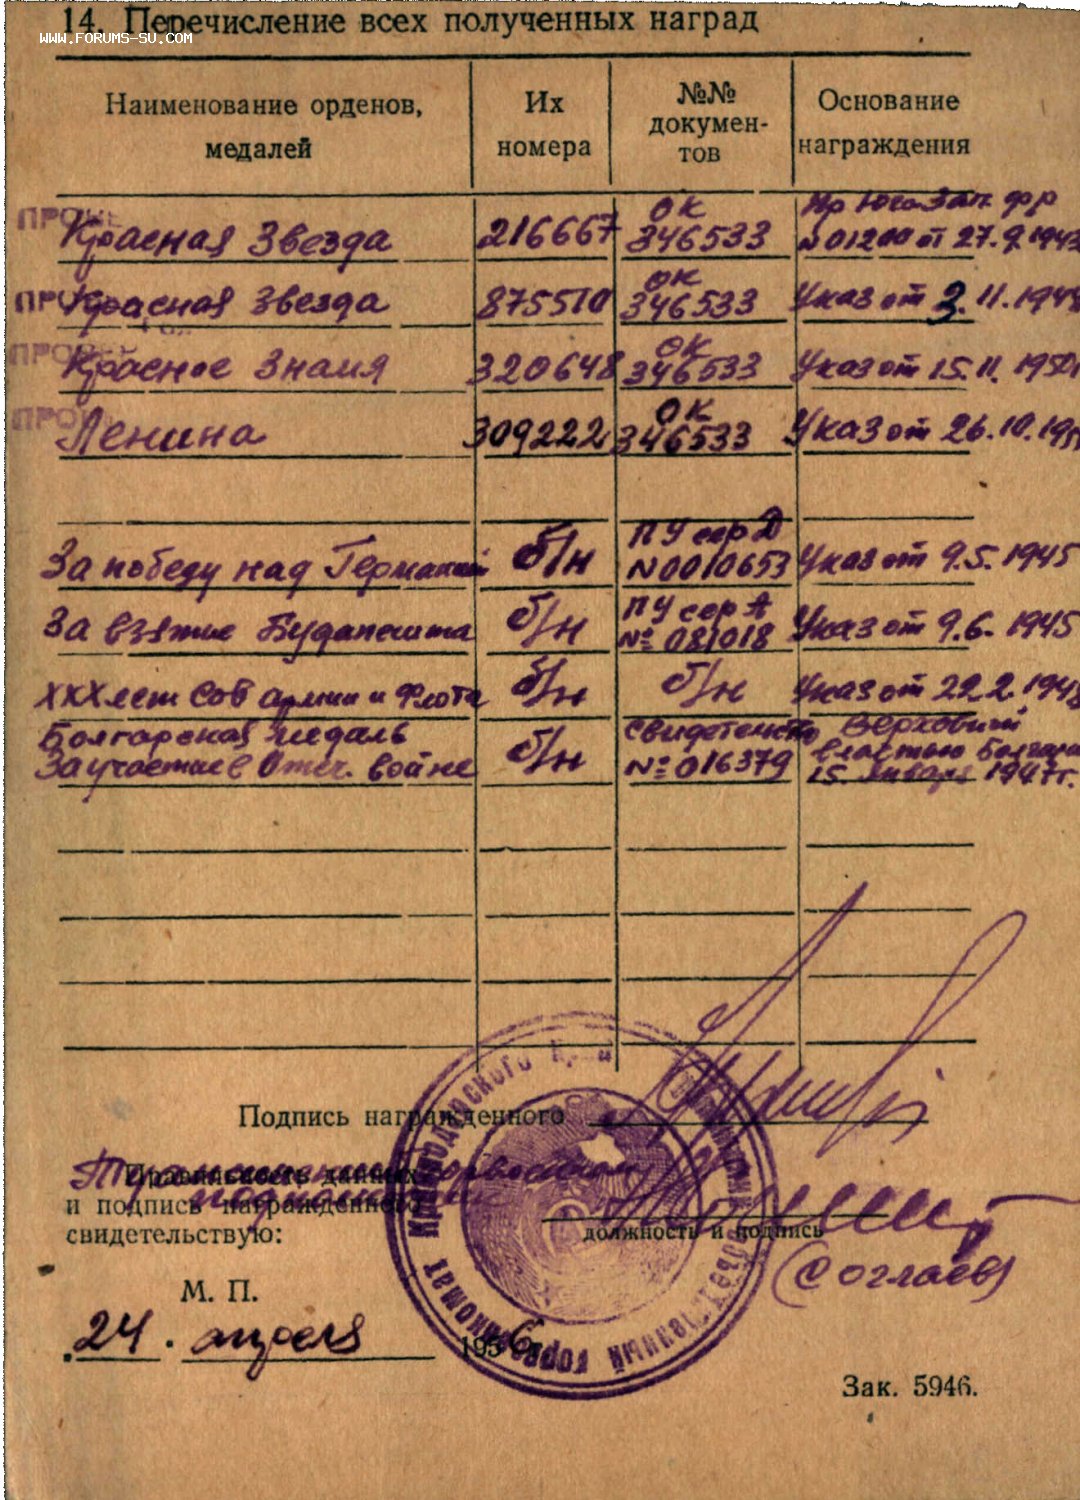 14. Перечисление всех полученных наград
www.forums-su.com
Наименование орденов, медалей
Их номера
№№ документов
Основание награждения
Красная Звезда 216667 ОК 346533 Пр Юго Зап. фр №01200 от 27.9.1943
Красная Звезда 875510 ОК 346533 Указ от 3.11.194
Красное Знамя 320648 ОК 346533 Указ от 15.11.1950
Ленина 309222 ОК 346533 Указ от 26.10.195
За победу над Германией б/н ПУ сер Д №0010653 Указ от 9.5.1945
За взятие Будапешта б/н ПУ сер А №081018 Указ от 9.6.1945
XXX лет Сов армии и Флота б/н б/н Указ от 22.2.1948
Болгарская медаль За участие в Отеч. войне б/н Свидетельство №016379 Верховный властью Болгари 15 января 1947г.
Подпись награжденного
Правильность данных
и подпись награжденного
свидетельствую:
должность и подпись
(Соглаев)
М. П.
24 апреля 1956 г.
Краснодарского края
Объединенный горвоенкомат
Зак. 5946.